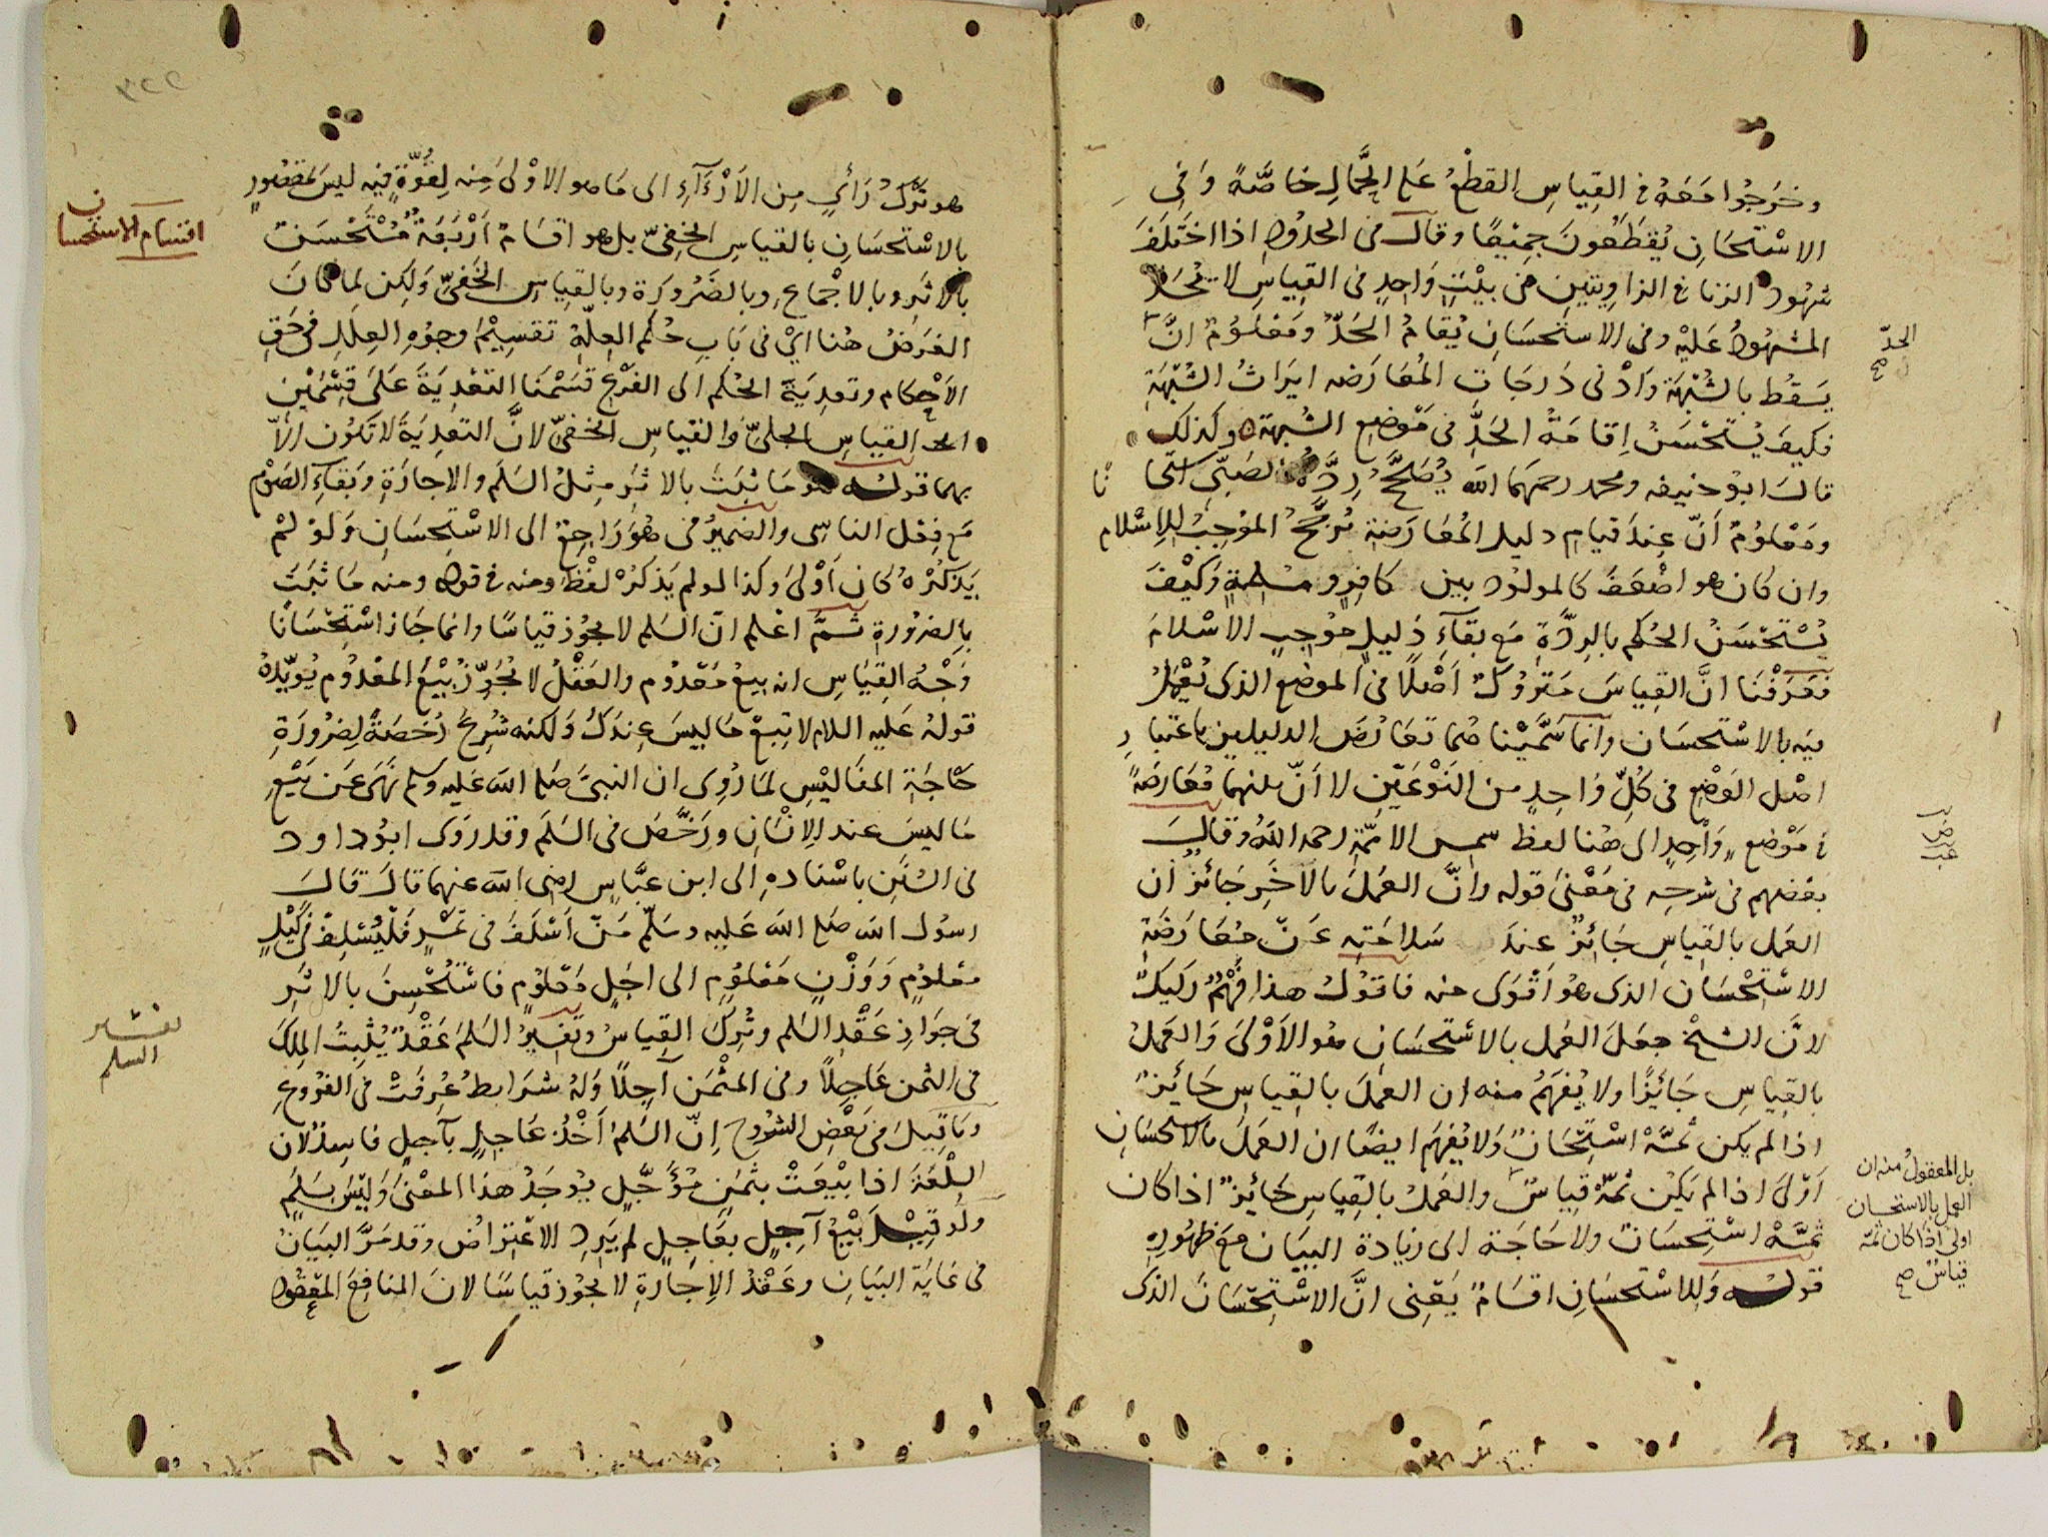 وخرجوا معه في القياس القطع على الحمال خاصة وفي
الاستحسان يقطعون جميعا وقال في الحدود اذا اختلف
شهود الزنا في الزاويتين في بيت واحد في القياس لا يحد
المشهود عليه وفي الاستحسان يقام الحد ومعلوم ان
الحد صح
يسقط بالشبهة وادنى درجات المعارضه ايراث الشبهة
فكيف يستحسن اقامة الحد في موضع الشبهة وكذلك
قال ابو حنيفه ومحمد رحمهما الله تصح ردة الصبي استحسانا
ومعلوم ان عند قيام دليل المعارضة ترجح الموجب للاسلام
وان كان هو اضعف كالمولود بين كافر ومسلمة وكيف
يستحسن الحكم بالردة مع بقاء دليل موجب الاسلام
فعرفنا ان القياس متروك اصلا في الموضع الذي يعمل
فيه بالاستحسان وانما سميناهما تعارض الدليلين باعتبار
اصل الوضع في كل واحد من النوعين لا ان بينهما معارضة
في موضع واحد الى هنا لفظ شمس الائمة رحمه الله وقال
بعضهم في شرحه في معنى قوله وان العمل بالآخر جائز ان
العمل بالقياس جائز عند سلامته عن معارضة
الاستحسان الذي هو اقوى منه فاقول هذا فهم ركيك
لان الشيخ جعل العمل بالاستحسان هو الاولى والعمل
بالقياس جائزا ولا يفهم منه ان العمل بالقياس جائز
اذا لم يكن ثمة استحسان ولا يفهم ايضا ان العمل بالاستحسان
اولى اذا لم يكن ثمة قياس والعمل بالقياس جائز اذا كان
بل المعقول منه ان
العمل بالاستحسان
اولى اذا كان ثمة
قياس صح
ثمة استحسان ولا حاجة الى زيادة البيان مع ظهوره
قوله وللاستحسان اقسام يعني ان الاستحسان الذي
هو ترك رأي من الآراء الى ما هو الاولى منه لقوة فيه ليس بمقصور
اقسام الاستحسان
بالاستحسان بالقياس الخفي بل هو اقسام اربعة مستحسن
بالاثر وبالاجماع وبالضرورة وبالقياس الخفي ولكن لما كان
الغرض هنا اي في باب حكم العلة تقسيم وجوه العلل في حق
الاحكام وتعدية الحكم الى الفرع قسمنا التعدية على قسمين
القياس الجلي والقياس الخفي لان التعدية لا تكون الا
بهما قوله هو ما ثبت بالاثر مثل السلم والاجارة وبقاء الصوم
مع فعل الناسي والضمير في هو راجع الى الاستحسان ولو لم
يذكره كان اولى وكذا لو لم يذكر لفظ ومنه في قوله ومنه ما ثبت
بالضرورة ثم اعلم ان السلم لا يجوز قياسا وانما جاز استحسانا
وجه القياس انه بيع معدوم والعقل لا يجوز بيع المعدوم يؤيده
قوله عليه السلام لا تبع ما ليس عندك ولكنه شرع رخصة لضرورة
حاجة المفاليس لما روي ان النبي صلى الله عليه وسلم نهى عن بيع
ما ليس عند الانسان ورخص في السلم وقد روى ابو داود
في السنن باسناده الى ابن عباس رضي الله عنهما قال قال
رسول الله صلى الله عليه وسلم من اسلف في تمر فليسلف في كيل
معلوم ووزن معلوم الى اجل معلوم فاستحسن بالاثر
في جواز عقد السلم وترك القياس وتفسير السلم عقد يثبت الملك
تفسير
السلم
في الثمن عاجلا وفي المثمن آجلا وله شرايط عرفت في الفروع
وما قيل في بعض الشروح ان السلم اخذ عاجل بآجل فاسد لان
السلعة اذا بيعت بثمن مؤجل يوجد هذا المعنى وليس بسلم
ولو قيل بيع آجل بعاجل لم يرد الاعتراض وقد مر البيان
في غاية البيان وعقد الاجارة لا يجوز قياسا لان المنافع المعقود